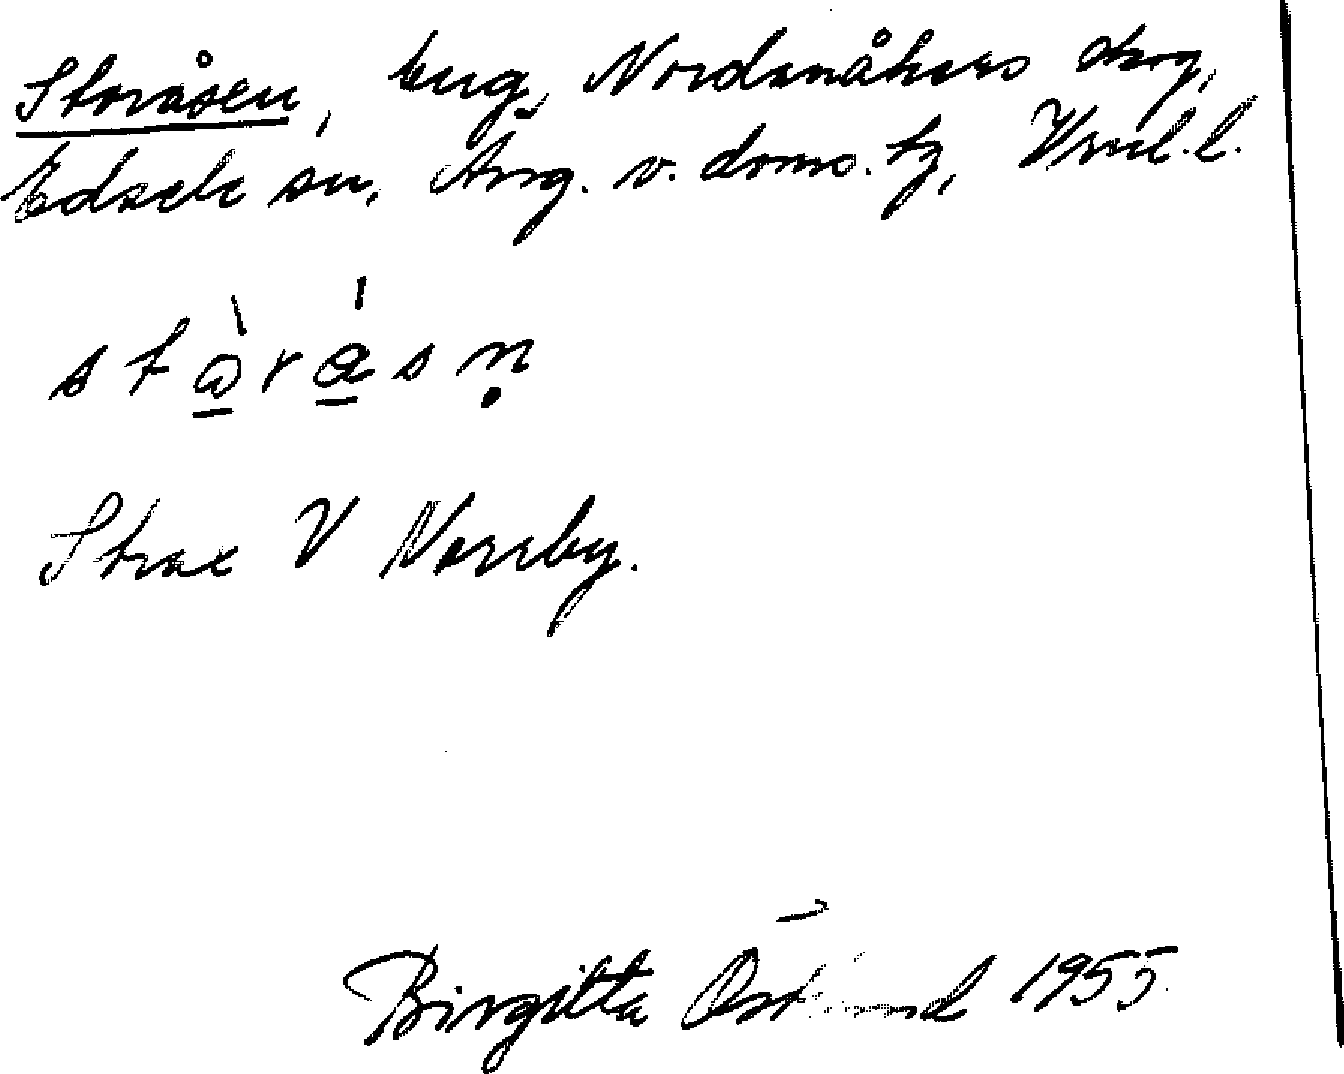 Storåsen, äng, Nordanåkers ång,
Edsele sn, Ång. v. doms. tg, Vrnl. l.
stòråsṇ
Strax V Norrby.
Birgitta Östlund 1955